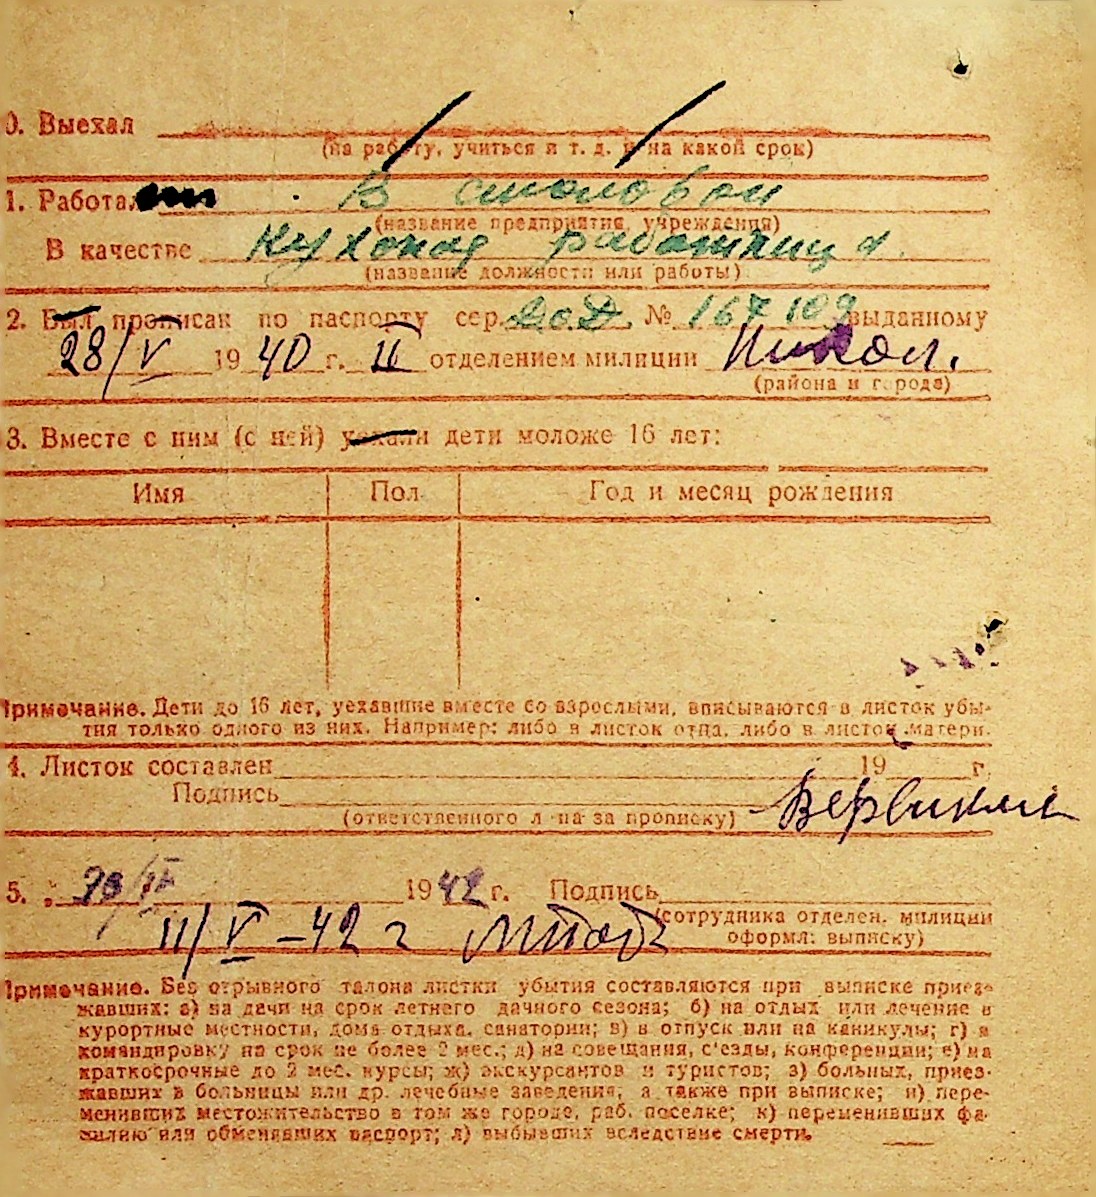 0. Выехал
(на работу, учиться и т. д. и на какой срок)
1. Работал В столовой
(название предприятия, учреждения)
В качестве Кухоной работница
(название должности или работы)
2. Был прописан по паспорту сер. № 167109 выданному
28/V 1940 г. II отделением милиции Никол.
(района и города)
3. Вместе с ним (с ней) уехали дети моложе 16 лет:
Имя Пол Год и месяц рождения
Примечание. Дети до 16 лет, уехавшие вместе со взрослыми, вписываются в листок убы-
тия только одного из них. Например: либо в листок отца, либо в листок матери.
4. Листок составлен 19 г.
Подпись
(ответственного л-ца за прописку)
5. 1942 г. Подпись
(сотрудника отделен. милиции
11/V-42 г
оформл: выписку)
Примечание. Без отрывного талона листки убытия составляются при выписке приез-
жавших: а) на дачи на срок летнего дачного сезона; б) на отдых или лечение в
курортные местности, дома отдыха, санатории; в) в отпуск или на каникулы; г) в
командировку на срок не более 2 мес.; д) на совещания, с'езды, конференции; е) на
краткосрочные до 2 мес. курсы; ж) экскурсантов и туристов; з) больных, приез-
жавших в больницы или др. лечебные заведения, а также при выписке; и) пере-
менивших местожительство в том же городе, раб. поселке; к) переменивших фа-
милию или обменявших паспорт; л) выбывших вследствие смерти.